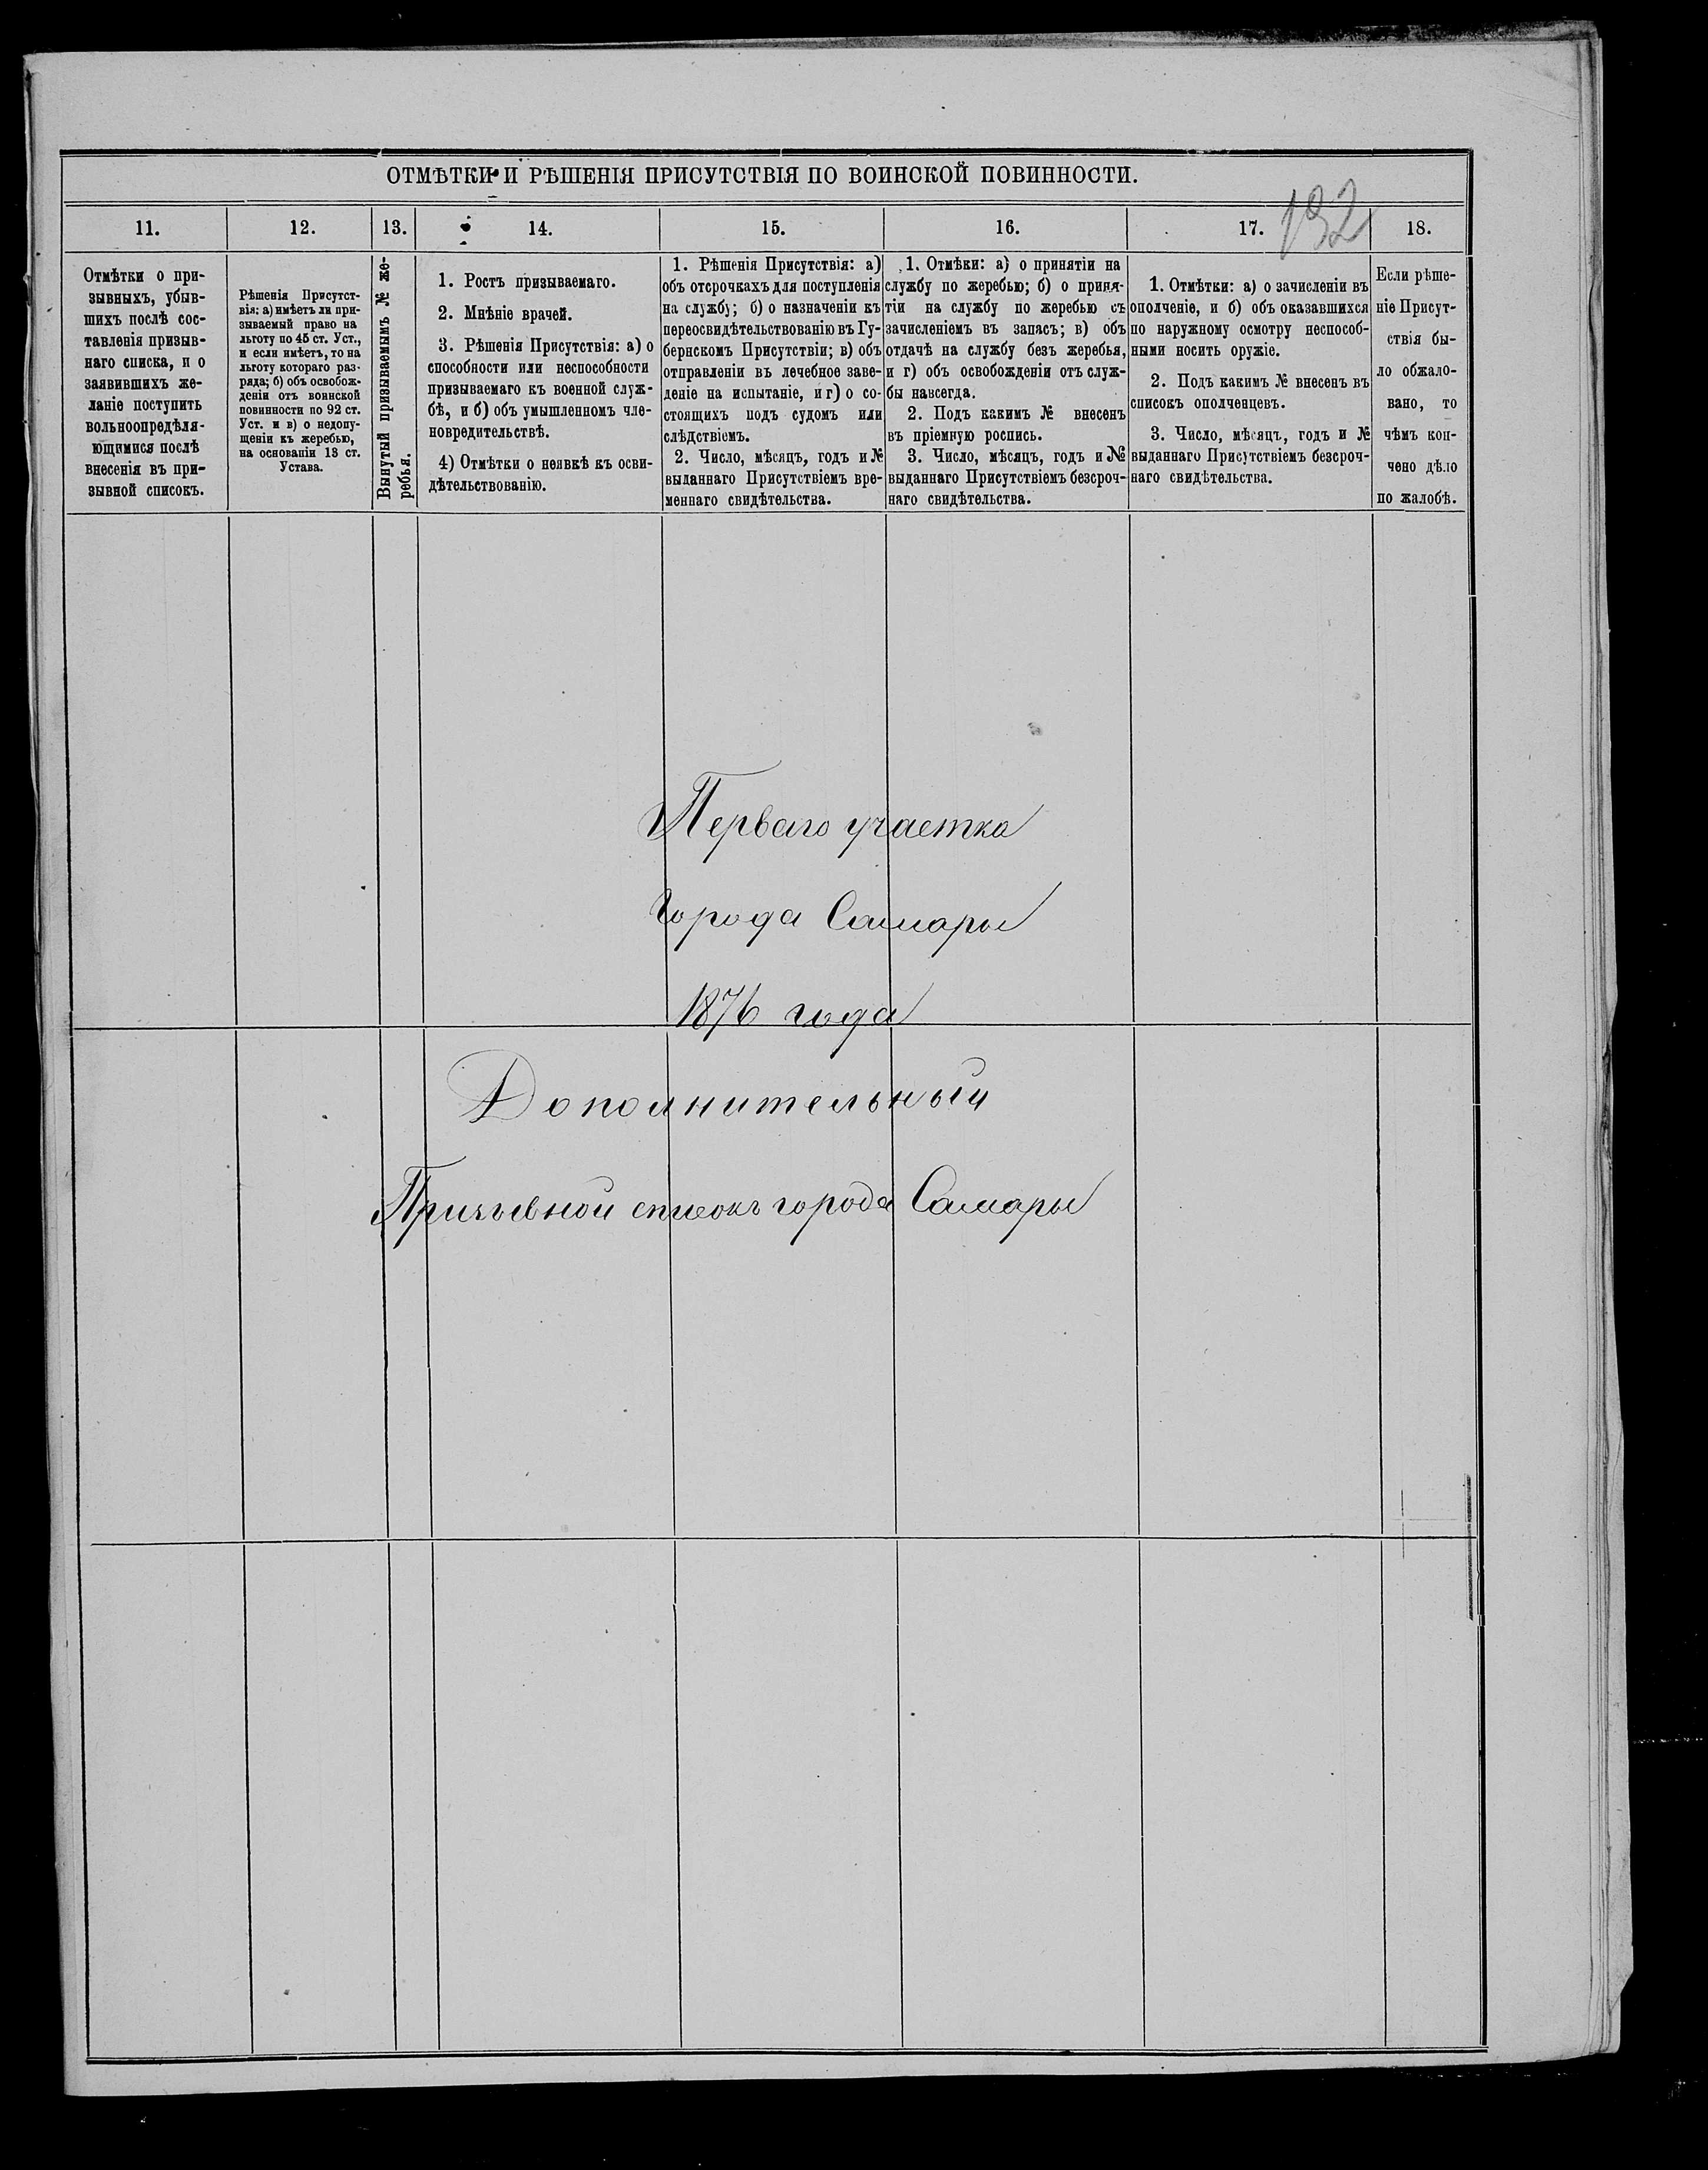 ОТМѢТКИ И РѢШЕНІЯ ПРИСУТСТВІЯ ПО ВОИНСКОЙ ПОВИННОСТИ.
192
11.
12.
13.
14.
15.
16.
17.
18.
Отмѣтки о при-
зывныхъ, убыв-
шихъ послѣ сос-
тавленія призыв-
наго списка, и о
заявившихъ же-
ланіе поступить
вольноопредѣля-
ющимися послѣ
внесенія въ при-
зывной списокъ.
Рѣшенія Присутст-
вія: а) имѣетъ ли при-
зываемый право на
льготу по 45 ст. Уст.,
и если имѣетъ, то на
льготу котораго раз-
ряда; б) объ освобож-
деніи отъ воинской
повинности по 92 ст.
Уст. и в) о недопу-
щеніи къ жеребью,
на основаніи 13 ст.
Устава.
Вынутый призываемымъ № же-
ребья.
1. Ростъ призываемаго.
2. Мнѣніе врачей.
3. Рѣшенія Присутствія: а) о
способности или неспособности
призываемаго къ военной служ-
бѣ, и б) объ умышленномъ чле-
новредительствѣ.
4) Отмѣтки о неявкѣ къ осви-
дѣтельствованію.
1. Рѣшенія Присутствія: а)
объ отсрочкахъ для поступленія
на службу; б) о назначеніи къ
переосвидѣтельствованію въ Гу-
бернскомъ Присутствіи; в) объ
отправленіи въ лечебное заве-
деніе на испытаніе, и г) о со-
стоящихъ подъ судомъ или
слѣдствіемъ.
2. Число, мѣсяцъ, годъ и №
выданнаго Присутствіемъ вре-
меннаго свидѣтельства.
1. Отмѣки: а) о принятіи на
службу по жеребью; б) о приня-
тіи на службу по жеребью съ
зачисленіемъ въ запасъ; в) объ
отдачѣ на службу безъ жеребья,
и г) объ освобожденіи отъ служ-
бы навсегда.
2. Подъ какимъ № внесенъ
въ пріемную роспись.
3. Число, мѣсяцъ, годъ и №
выданнаго Присутствіемъ безсроч-
наго свидѣтельства.
1. Отмѣтки: а) о зачисленіи въ
ополченіе, и б) объ оказавшихся
по наружному осмотру неспособ-
ными носить оружіе.
2. Подъ какимъ № внесенъ въ
списокъ ополченцевъ.
3. Число, мѣсяцъ, годъ и №
выданнаго Присутствіемъ безсроч-
наго свидѣтельства.
Если рѣше-
ніе Присут-
ствія бы-
ло обжало-
вано, то
чѣмъ кон-
чено дѣло
по жалобѣ.
Перваго участка
города Самары
1876 года
Дополнительный
Призывной списокъ города Самары